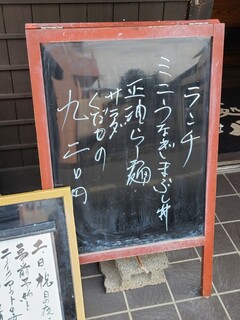 ランチ
ミニうなぎまぶし丼
正油らー麺
サラダ
くだもの
九二〇円
土日祝日の夜